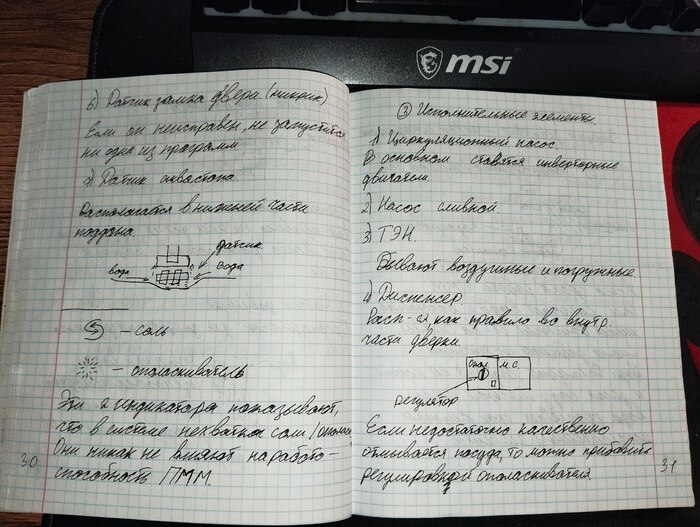 msi
б) Датчик замка двери (микрик)
Если он неисправен, не запустится
ни одна из программ
Датчик аквастопа
Располагается в нижней части
поддона.
датчик
вода
вода
— соль
— ополаскиватель
Эти 2 индикатора показывают,
что в системе нехватка соли/ополас.
Они никак не влияют на работо-
способность ПММ.
30
③ Исполнительные элементы
1) Циркуляционный насос
В основном ставятся инверторные
двигатели.
2) Насос сливной.
3) ТЭН.
Бывают воздушные и погружные.
4) Диспенсер.
Расп-ся как правило во внутр.
части дверки.
Опол
М.С.
регулятор
Если недостаточно качественно
отмывается посуда, то можно прибавить
регулировкой ополаскивателя.
31